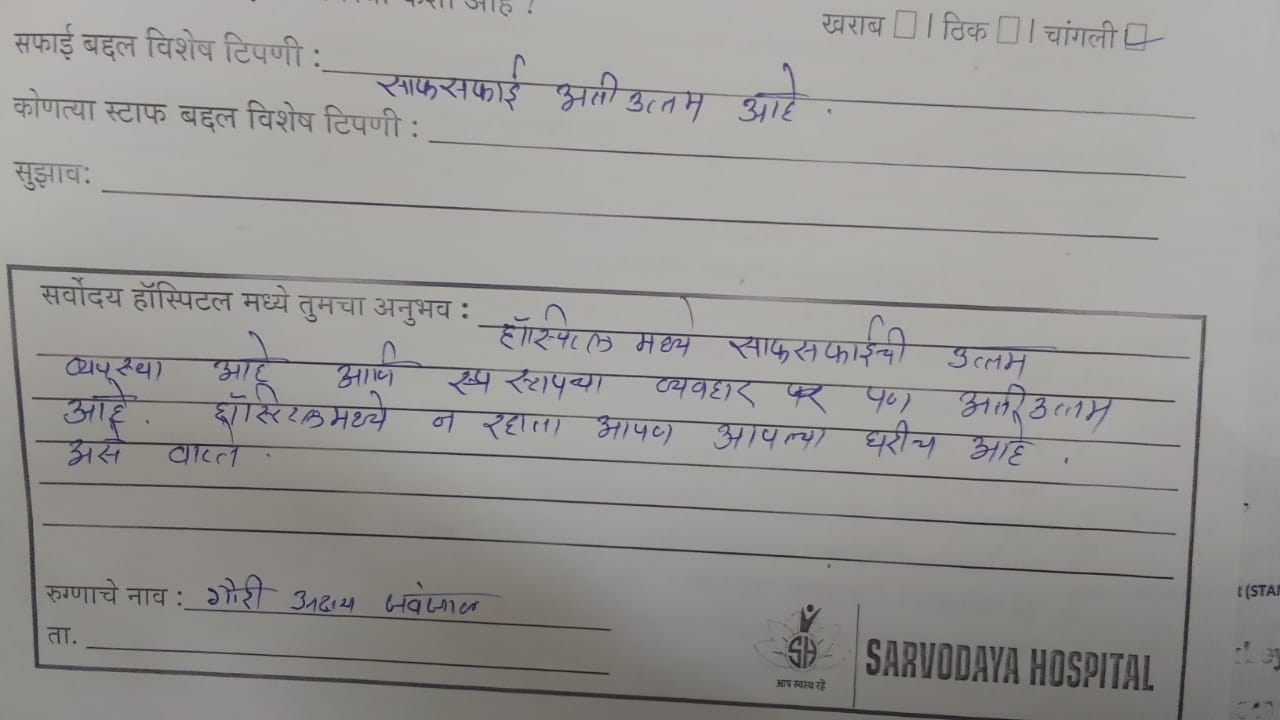 कशी आहे ?
खराब □ । ठिक □ । चांगली ☑
सफाई बद्दल विशेष टिपणी : साफसफाई अती उत्तम आहे .
कोणत्या स्टाफ बद्दल विशेष टिपणी :
सुझाव:
सर्वोदय हॉस्पिटल मध्ये तुमचा अनुभव : हॉस्पिटल मध्ये साफसफाईची उत्तम
व्यवस्था आहे आणि स्टापचा व्यवहार पण अती उत्तम
आहे . हॉस्पिटलमध्ये न रहाता आपण आपल्या घरीच आहे .
असे वाटते .
रुग्णाचे नाव : गौरी
ता.
SH
आप स्वस्थ रहे
SARVODAYA HOSPITAL
(STA